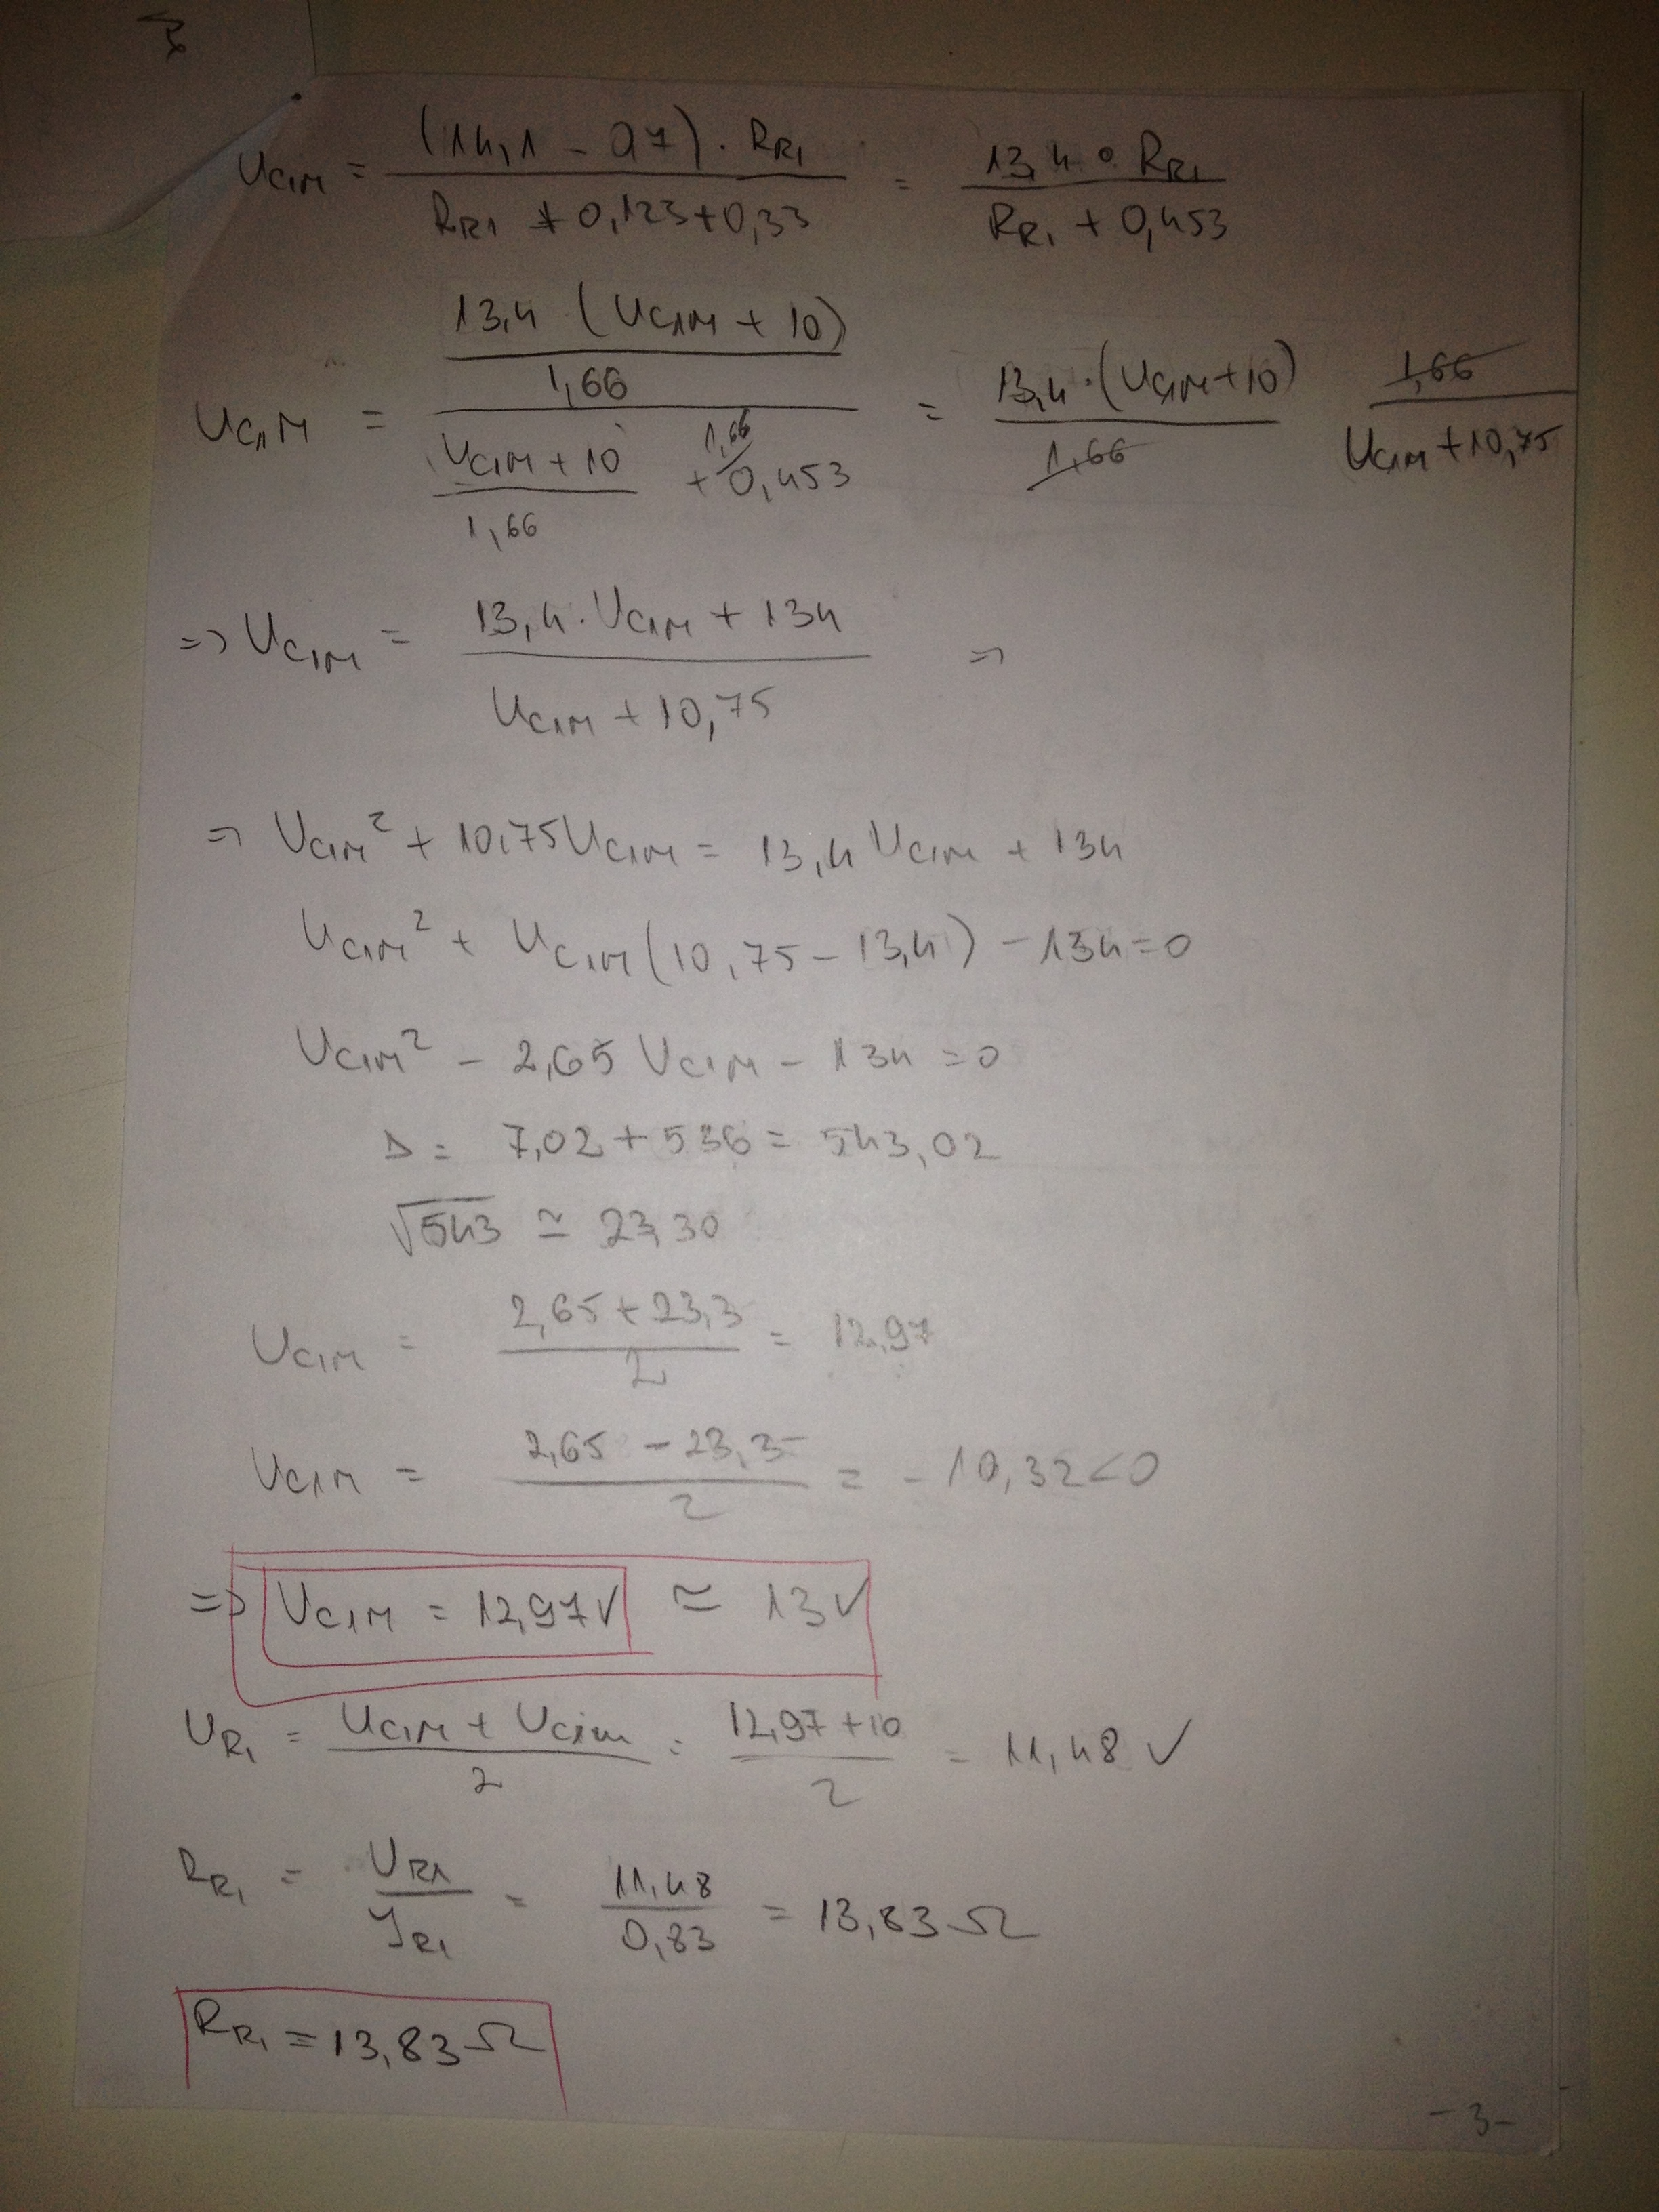 U_C1M = ((14,1 - 0,7) · R_R1) / (R_R1 + 0,123 + 0,33) = (13,4 · R_R1) / (R_R1 + 0,453)
U_C1M = (13,4 (U_C1M + 10) / 1,66) / ((U_C1M + 10) / 1,66 + 0,453 1,66/) = (13,4 · (U_C1M + 10)) / 1,66 1,66 / (U_C1M + 10,75)
=> U_C1M = (13,4 · U_C1M + 134) / (U_C1M + 10,75) =>
=> U_C1M² + 10,75 U_C1M = 13,4 U_C1M + 134
U_C1M² + U_C1M (10,75 - 13,4) - 134 = 0
U_C1M² - 2,65 U_C1M - 134 = 0
Δ = 7,02 + 536 = 543,02
√543 ≃ 23,30
U_C1M = (2,65 + 23,3) / 2 = 12,97
U_C1M = (2,65 - 23,3) / 2 = -10,32 < 0
=> U_C1M = 12,97V ≃ 13V
U_R1 = (U_C1M + U_C1m) / 2 = (12,97 + 10) / 2 = 11,48 V
R_R1 = U_R1 / I_R1 = 11,48 / 0,83 = 13,83 Ω
R_R1 = 13,83 Ω
-3-